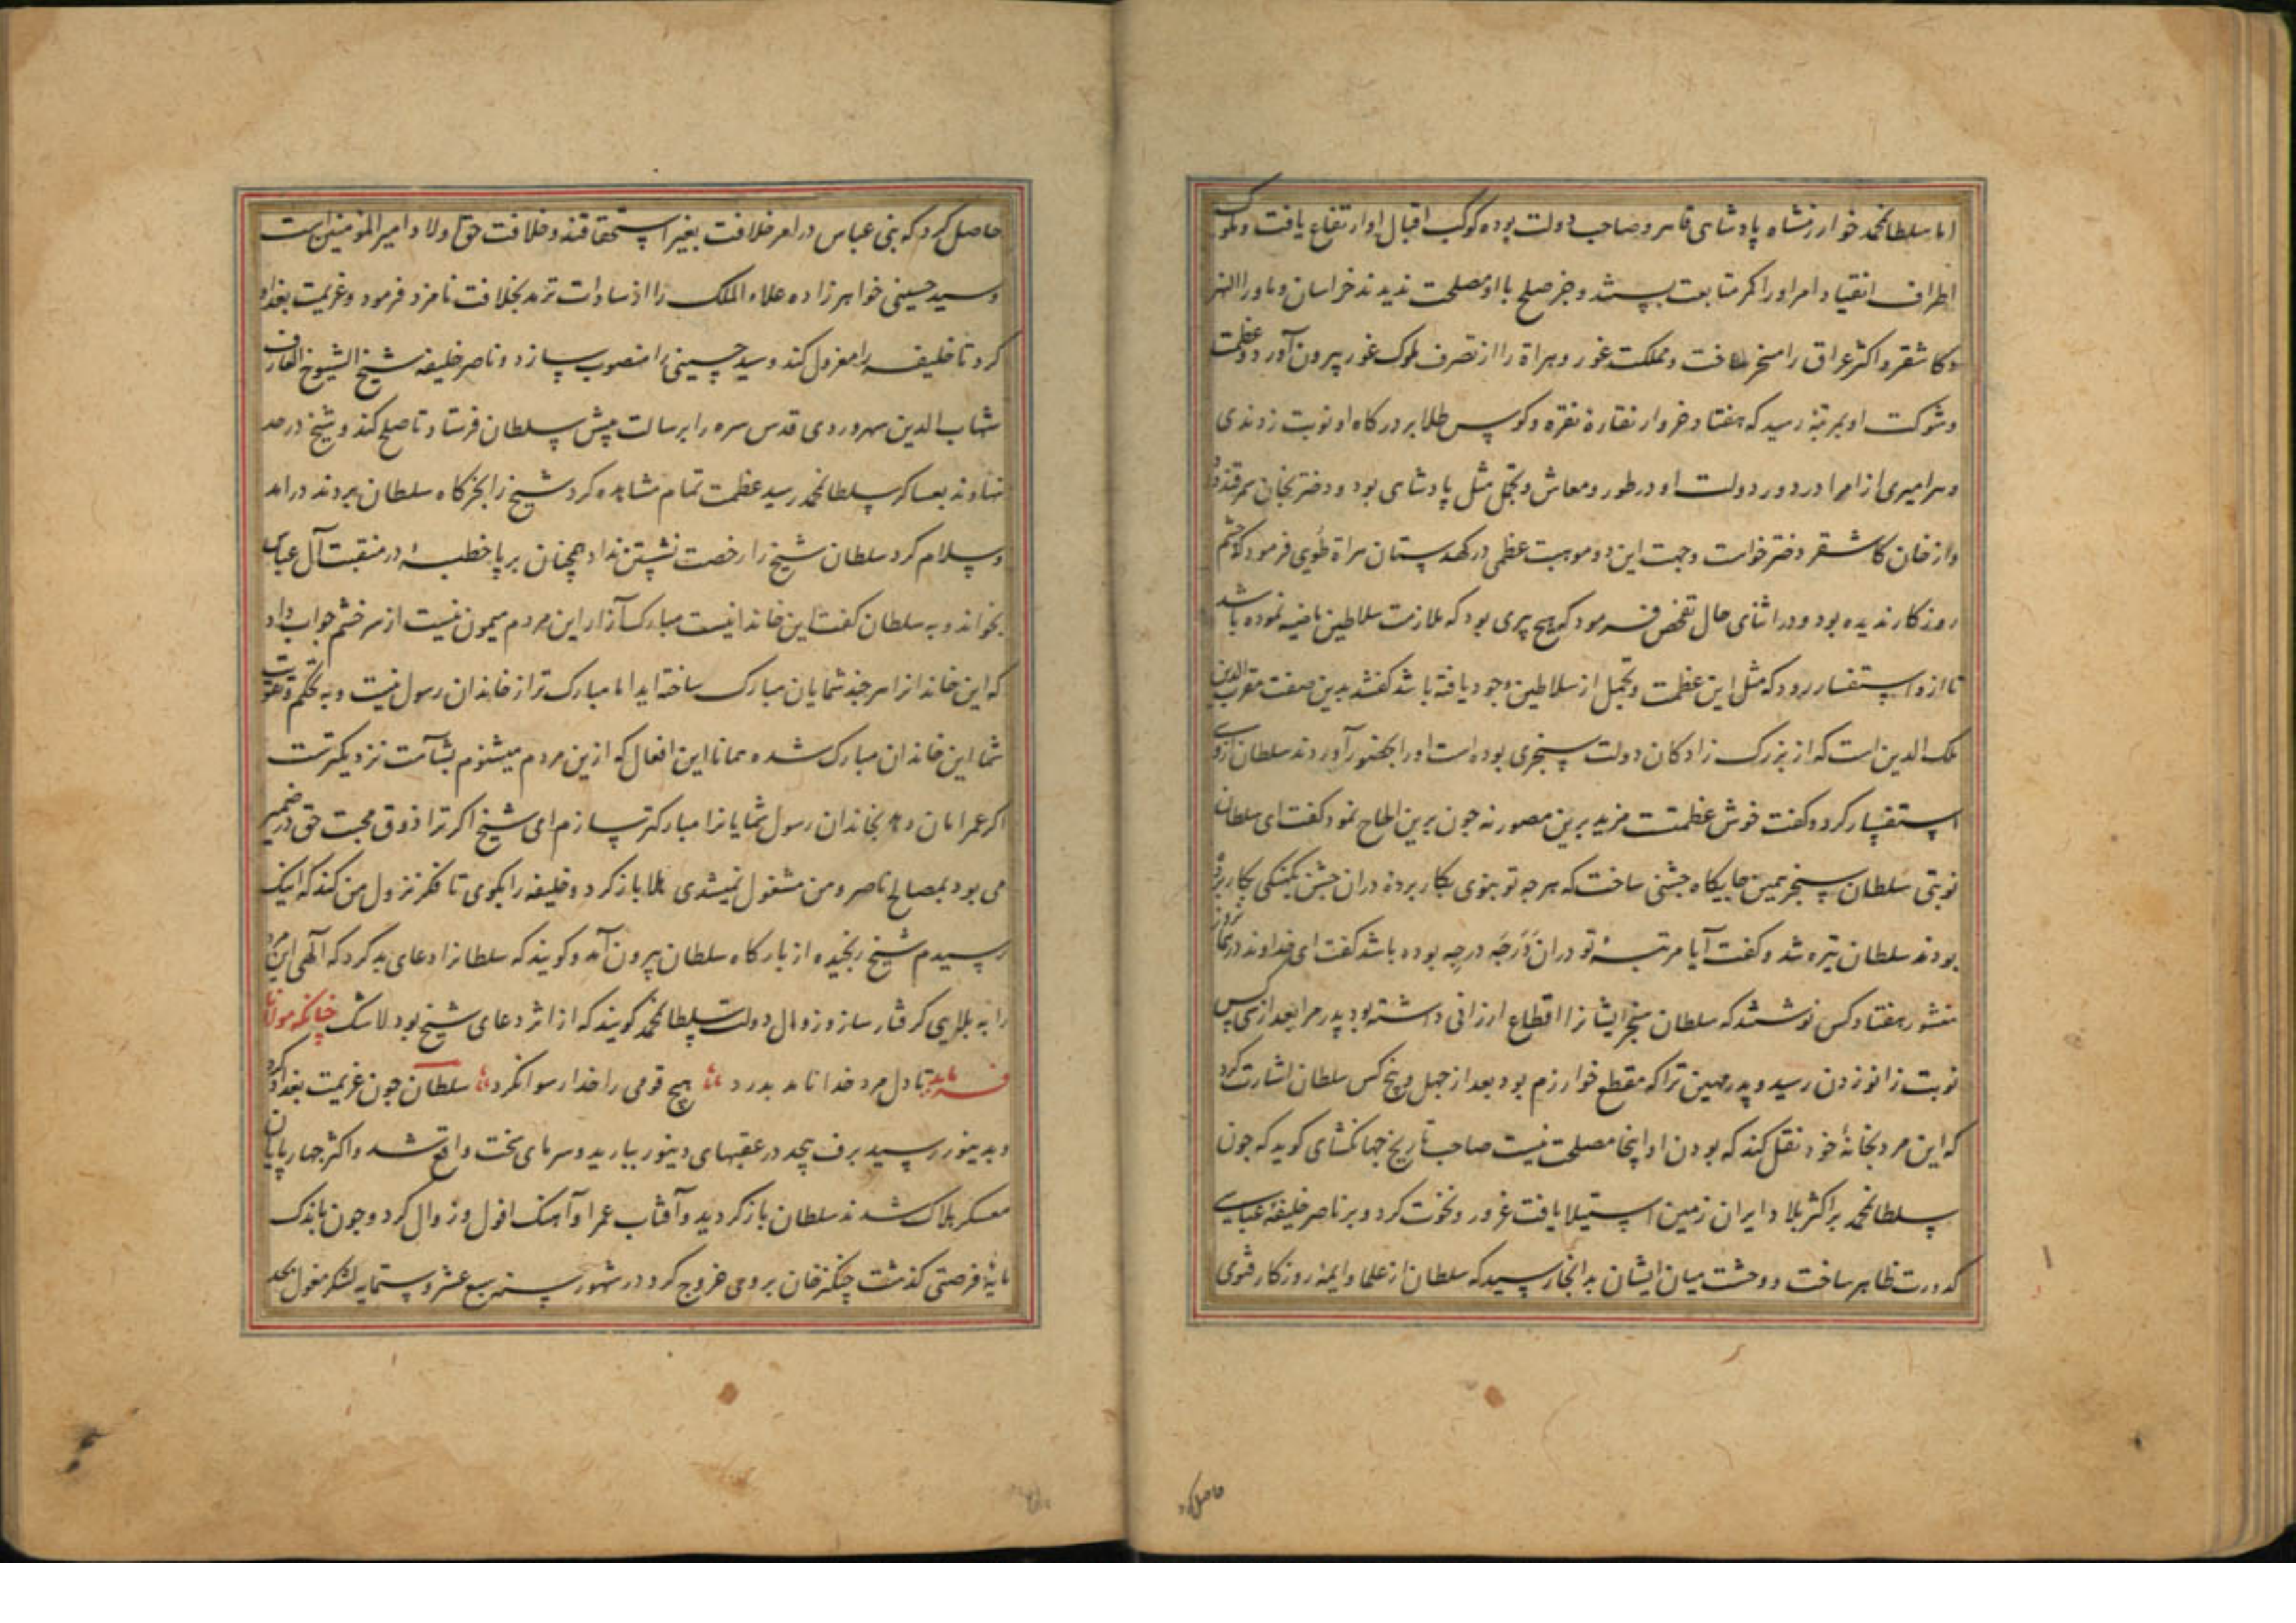 اما سلطان محمد خوارزمشاه پادشاهی قاهر و صاحب دولت بوده کوکب اقبال او ارتفاع یافت و ملوک
اطراف انقیاد امر او را کمر متابعت ببستند و جز صلح با او مصلحت ندیدند خراسان و ماوراالنهر
و کاشغر و اکثر عراق را مسخر ساخت و مملکت غور و هراة را از تصرف ملوک غور بیرون آورد و عظمت
و شوکت او بمرتبه رسید که هفتاد خروار نقاره نقره و کوس طلا بر درکاه او نوبت زدندی
و هر امیری از امرا در دور دولت او در طور و معاش و تجمل مثل پادشاهی بود و دختر بخان سمرقند داد
و از خان کاشغر دختر خواست و جهت این دو موهبت عظمی در کهدستان هراة طویی فرمود که چشم
روزکار ندیده بود و در اثنای حال تفحص فرمود که هیچ پیری بود که ملازمت سلاطین ماضیه نموده باشد
تا از و استفسار رود که مثل این عظمت و تجمل از سلاطین وجود یافته باشد کفتند بدین صفت مقرب الدین
ملک الدین است که از بزرک زادکان دولت سنجری بوده است او را بحضور آوردند سلطان از وی
استفسار کرد و کفت خوش عظمتت مزید برین متصور نه جون برین الحاح نمود کفت ای سلطان
نوبتی سلطان سنجر همین جایکاه جشنی ساخت که هر جه تو بنوی بکار برده دران جشن بکهنکی بکار برده
بودند سلطان تیره شد و کفت آیا مرتبه تو دران درجه درجه بوده باشد کفت ای خداوند در آن روز
منشور هفتاد کس نوشتند که سلطان سنجر ایشانرا اقطاع ارزانی داشته بود پدر مرا بعد از سی کس
نوبت زانو زدن رسید و پدر مهین ترا که مقطع خوارزم بود بعد از جهل و پنج کس سلطان اشارت کرد
که این مرد بخانه خود نقل کند که بودن او اینجا مصلحت نیست صاحب تاریخ جهانکشای کوید که جون
سلطان محمد بر اکثر بلاد ایران زمین استیلا یافت غرور و نخوت کرد و بر ناصر خلیفه عباسی
کدورت ظاهر ساخت و وحشت میان ایشان بدانجا رسید که سلطان از علما و ایمه روزکار فتوی
حاصل کرد
حاصل کرد که بنی عباس در امر خلافت بغیر استحقاقند و خلافت حق اولاد امیر المؤمنین است
و سید حسینی خواهرزاده علاء الملک را از سادات ترمد بخلافت نامزد فرمود و عزیمت بغداد
کرد تا خلیفه را معزول کند و سید حسینی را منصوب سازد و ناصر خلیفه شیخ الشیوخ العارف
شهاب الدین سهروردی قدس سره را برسالت پیش سلطان فرستاد تا صلح کند و شیخ در حد
نهاوند بعساکر سلطان محمد رسید عظمت تمام مشاهده کرد شیخ را بخرکاه سلطان بردند درامد
و سلام کرد سلطان شیخ را رخصت نشستن نداد همچنان بر پا خطبه در منقبت آل عباس
بخواند و به سلطان کفت این خاندانیست مبارک آزار این مردم میمون نیست از سر خشم جواب داد
که این خاندانرا هر جند شمایان مبارک ساخته اید اما مبارک تر از خاندان رسول نیست و به تحکم و تقویت
شما این خاندان مبارک شده همانا این افعال که ازین مردم میشنوم بشآمت نزدیکترست
اکر عمر امان دهد بخاندان رسول شمایانرا مبارکتر سازم ای شیخ اکر ترا ذوق محبت حق در ضمیر
می بود بمصالح ناصر و من مشغول نمیشدی هلا بازکرد و خلیفه را بکوی تا فکر نزول من کند که اینک
رسیدم شیخ رنجیده از بارکاه سلطان بیرون آمد و کویند که سلطانرا دعای بد کرد که الهی این مرد
را به بلایی کرفتار ساز و زوال دولت سلطان محمد کویند که از اثر دعای شیخ بود لاشک چنانکه مولانا
فرماید تا دل مرد خدا نامد بدرد هیچ قومی را خدا رسوا نکرد سلطان جون عزیمت بغداد کرد
و بدینور رسید برف بیحد در عقبهای دینور ببارید و سرمای سخت واقع شد و اکثر جهارپایان
معسکر هلاک شدند سلطان بازکردید و آفتاب عمر او آهنک افول و زوال کرد و جون باندک
مایه فرصتی کذشت چنکزخان بر وی خروج کرد در شهور سنه سبع عشر و ستمایه لشکر مغول بحد